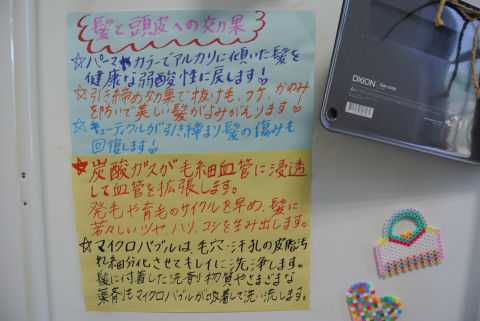 髪と頭皮への効果
☆パーマやカラーでアルカリに傾いた髪を
健康な弱酸性に戻します!
☆引き締め効果で抜け毛、フケ、かゆみ
を防いで美しい髪がよみがえります!
☆キューティクルが引き締まり髪の傷みも
回復します!
★炭酸ガスが毛細血管に浸透
して血管を拡張します。
発毛や育毛のサイクルを早め、髪に
若々しいツヤ、ハリ、コシを生み出します。
☆マイクロバブルは、毛穴・汗孔の皮脂汚
れ細分化させてキレイに洗浄します。
髪に付着した洗剤物質やさまざまな
薬剤をマイクロバブルが吸着して洗い流します。
DXION